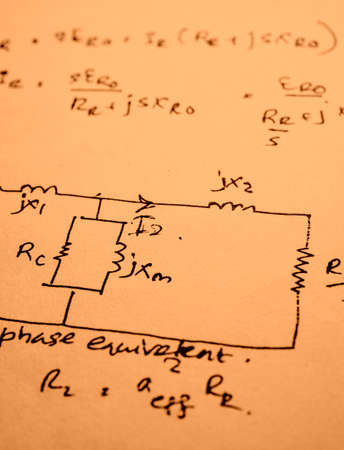 R = sE_RO = I_R (R_R + jsX_RO)
I_R = sE_RO / (R_R + jsX_RO) = E_RO / (R_R/s + jX
jX1 jX2
I2
Rc jXm R
phase equivalent.
R2 = a²eff R_R.